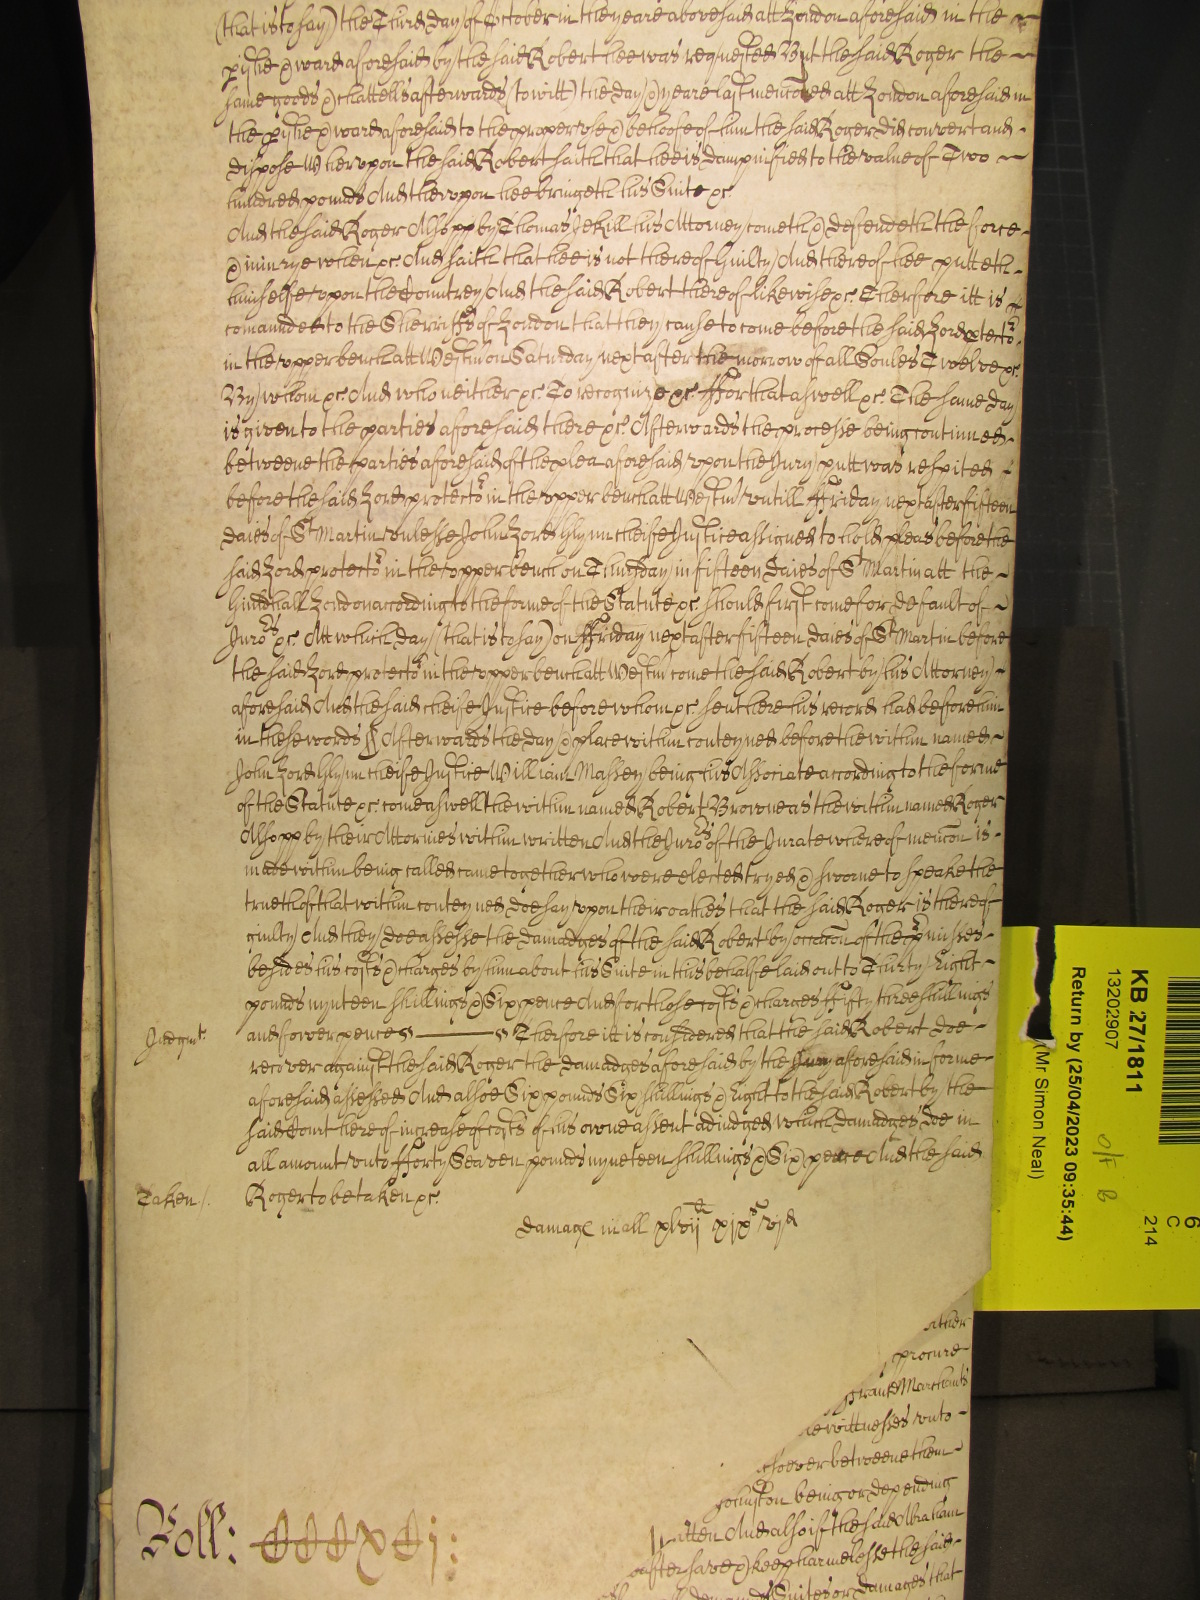 (that is to say) the Third day of October in the yeare abovesaid att London aforesaid in the
p[ar]ishe & ward aforesaid by the said Robert hee was requested But the said Roger the
same goods & chattells afterwards (to witt) the day & yeare last menc[i]oned att London aforesaid in
the p[ar]ishe & ward aforesaid to the proper use & behoofe of him the said Roger did convert and
dispose Wherupon the said Robert saith that hee is dampnified to the value of Two
hundred pounds And therupon hee bringeth his Suite &c
And the said Roger Alsopp by Thomas Jekill his Attorney cometh & defendeth the force
& iniurye when &c And saith that hee is not thereof Guilty And thereof hee putteth
himselfe upon the Countrey And the said Robert thereof likewise &c Therfore itt is
comaunded to the Sherriffs of London that they cause to come before the said Lord Protector
in the upper bench att Westm on Saturday next after the morrow of all Soules Twelve &c
By whom &c And who neither &c To recognize &c ffor that aswell &c The same day
is given to the parties aforesaid there &c Afterwards the processe being continued
betweene the parties aforesaid of the plea aforesaid upon the Jury putt was respited
before the said Lord protector in the upper bench att Westm untill ffriday next after fifteen
daies of St Martin unlesse John Lord Glynn cheife Justice assigned to hold pleas before the
said Lord protector in the upper bench on Thursday in fifteen daies of St Martin att the
Guildhall London according to the forme of the Statute &c should first come for default of
Jurors &c Att which day (that is to say) on ffriday next after fifteen daies of St Martin before
the said Lord protector in the upper bench att Westm come the said Robert by his Attorney
aforesaid And the said cheife Justice before whom &c sent here his record had before him
in these words ss Afterwards the day & place within conteyned before the within named
John Lord Glynn cheife Justice William Massey being his Associate according to the forme
of the Statute &c come aswell the within named Robert Browne as the within named Roger
Alsopp by their Attornies within written And the Jurors of the Jurate whereof mencon is
made within being called came together who were elected tryed & sworne to speake the
trueth of that within conteyned doe say upon their oathes that the said Roger is thereof
guilty And they doe assesse the damadges of the said Robert by occacon of the p[re]misses
besides his costs & charges by him about his Suite in this behalfe laid out to Thirty Eight
pounds nynteen shillings & Six pence And for those costs & charges ffifty three shillings
Judgmt and fower pence Therfore itt is considered that the said Robert doe
recover against the said Roger the damadges aforesaid by the Jury aforesaid in forme
aforesaid assessed And alsoe Six pounds Six shillings & Eight to the said Robert by the
said Court here of increase of costs of his owne assent adiudged which damadges doe in
all amount unto fforty Seaven pounds nyneteen shillings & Six pence And the said
Taken Roger to be taken &c
damag in all xlvii li xix s vi d
Roll: CCCXCj:
procure
Marchants
wittnesses unto
betweene them
being or depending
And alsoe if the said Abraham
after save & keep harmelesse the said
Suites or damages that
KB 27/1811
13202907
Return by (25/04/2023 09:35:44)
(Mr Simon Neal)
O/F B
6
C
214